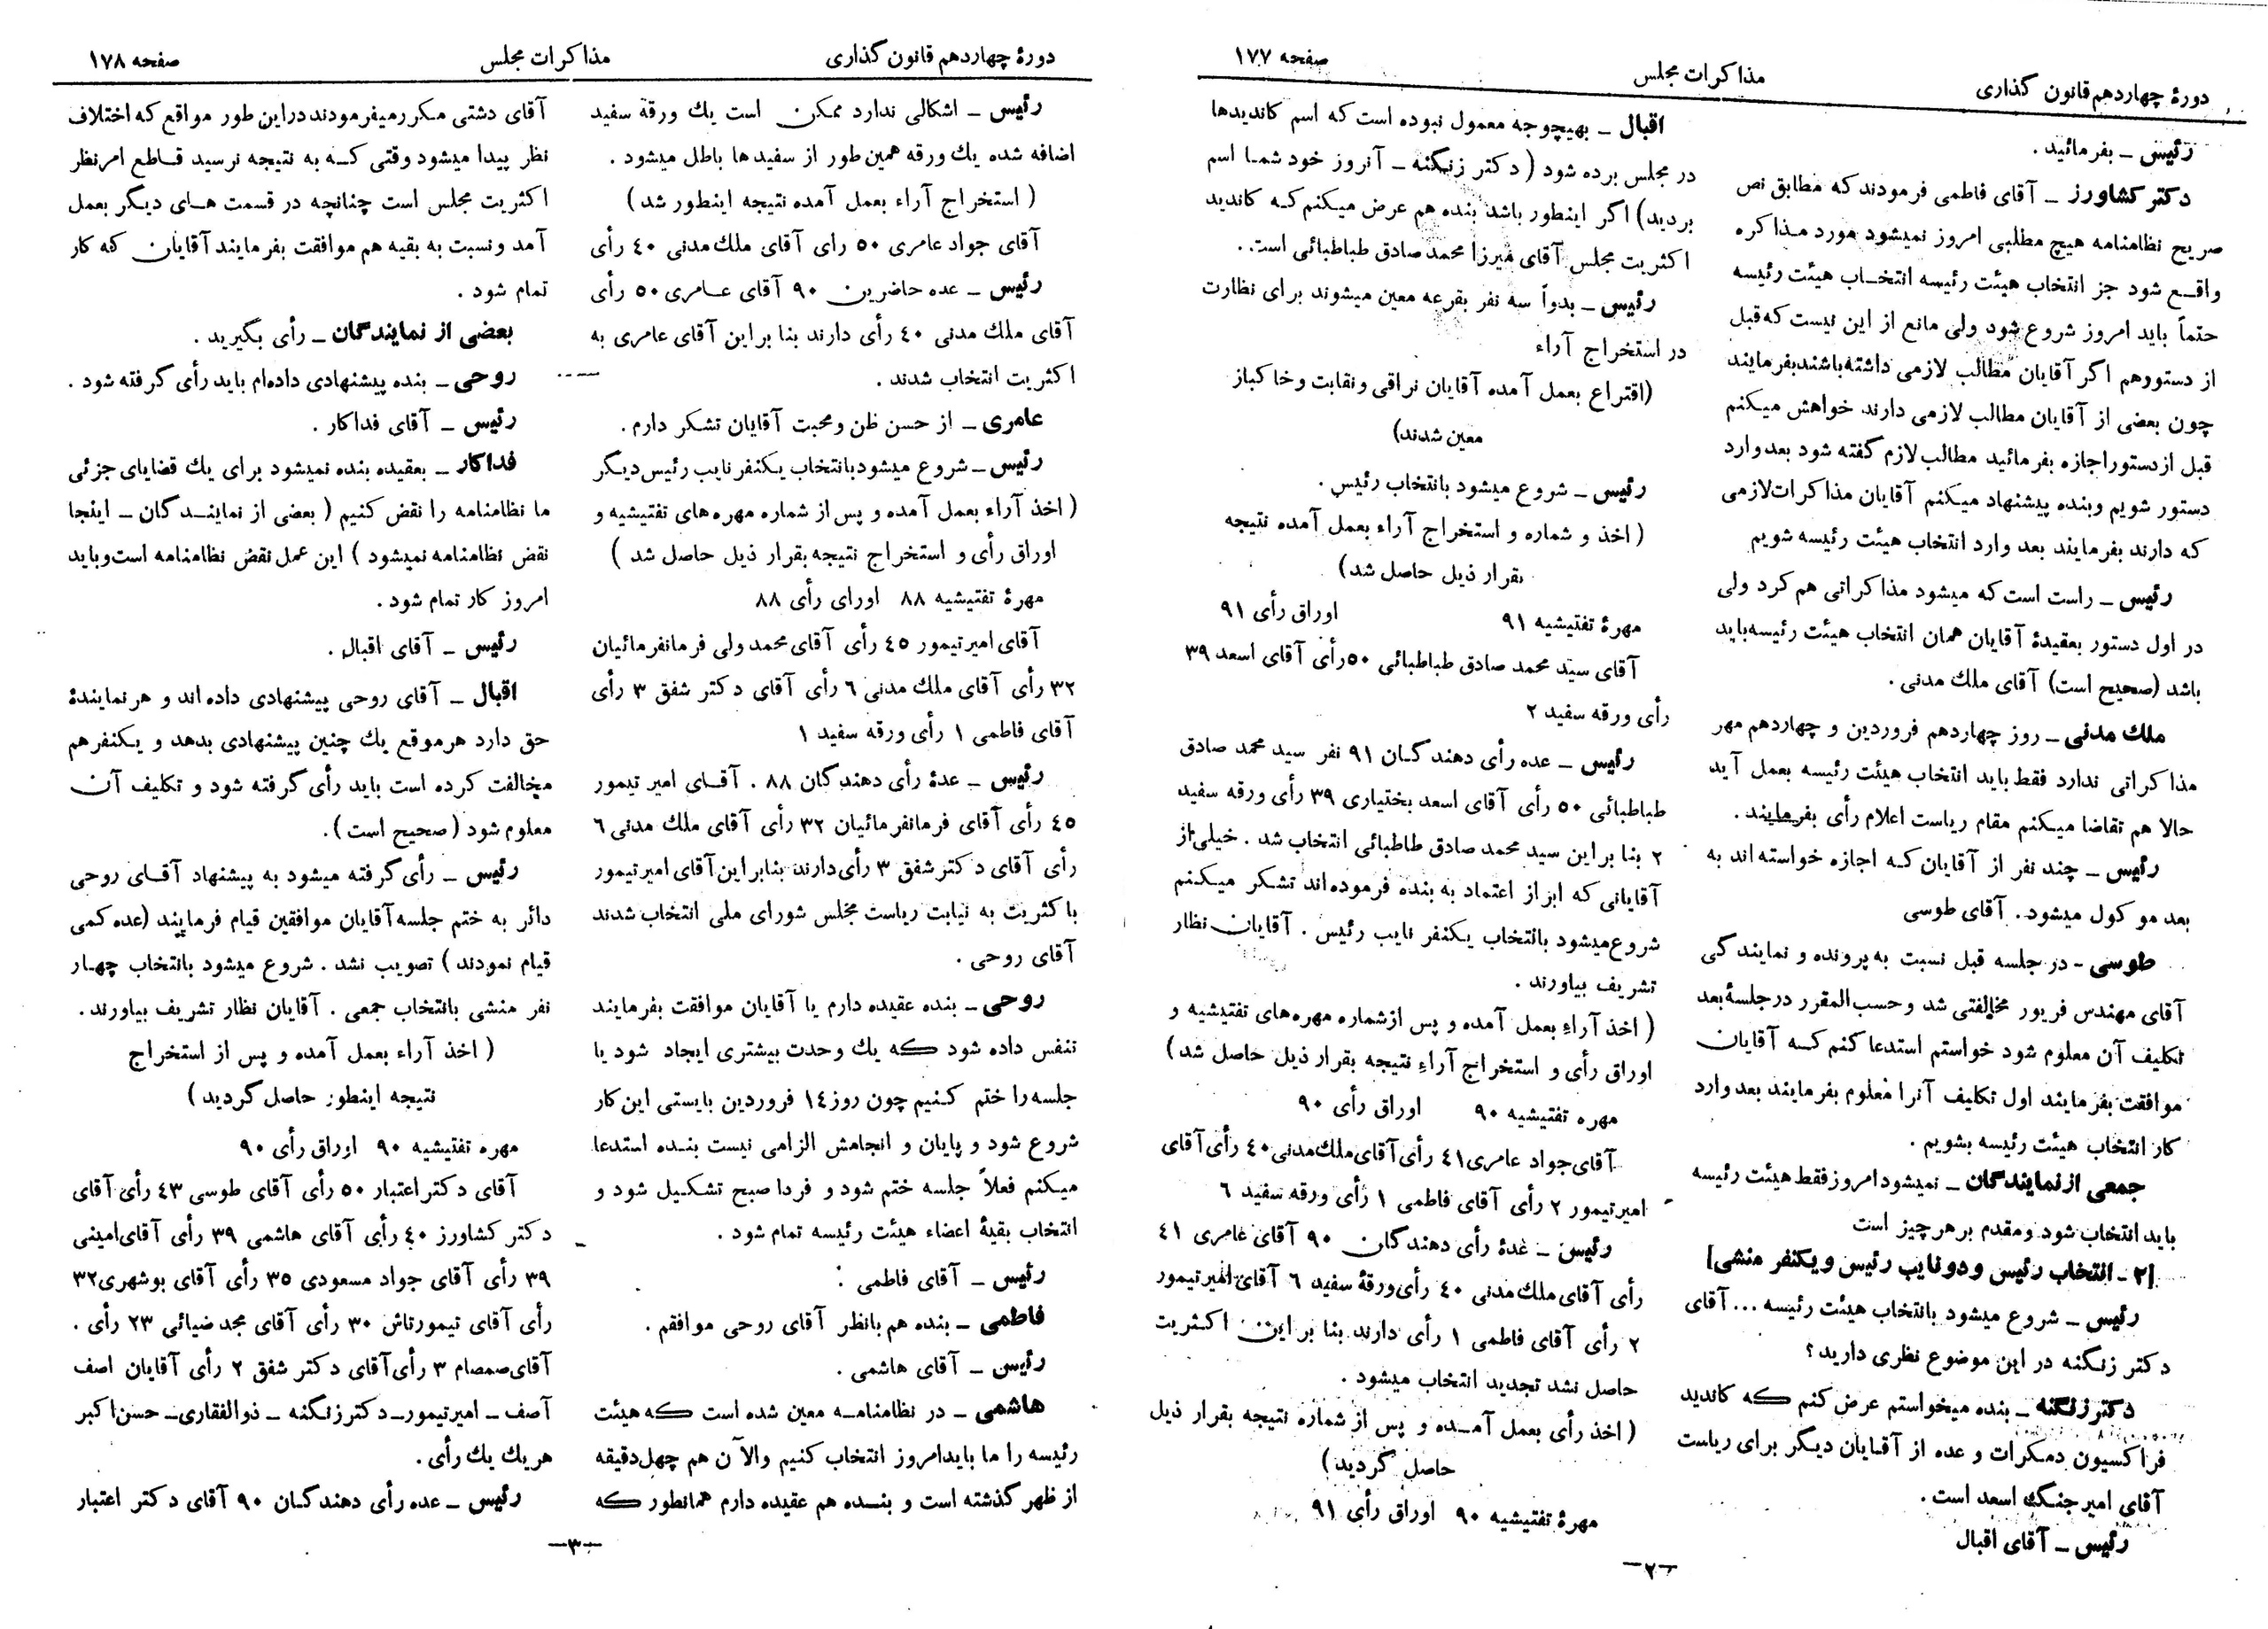 دورهٔ چهاردهم قانون گذاری
مذاکرات مجلس
صفحه ۱۷۷
رئیس ـ بفرمائید .
دکتر کشاورز ـ آقای فاطمی فرمودند که مطابق نص
صریح نظامنامه هیچ مطلبی امروز نمیشود مورد مذاکره
واقع شود جز انتخاب هیئت رئیسه انتخاب هیئت رئیسه
حتماً باید امروز شروع شود ولی مانع از این نیست که قبل
از دستور هم اگر آقایان مطالب لازمی داشته باشند بفرمایند
چون بعضی از آقایان مطالب لازمی دارند خواهش میکنم
قبل از دستور اجازه بفرمائید مطالب لازم گفته شود بعد وارد
دستور شویم و بنده پیشنهاد میکنم آقایان مذاکرات لازمی
که دارند بفرمایند بعد وارد انتخاب هیئت رئیسه شویم
رئیس ـ راست است که میشود مذاکراتی هم کرد ولی
در اول دستور بعقیدهٔ آقایان همان انتخاب هیئت رئیسه باید
باشد (صحیح است) آقای ملك مدنی .
ملك مدنی ـ روز چهاردهم فروردین و چهاردهم مهر
مذاکراتی ندارد فقط باید انتخاب هیئت رئیسه بعمل آید
حالا هم تقاضا میکنم مقام ریاست اعلام رأی بفرمایند .
رئیس ـ چند نفر از آقایان که اجازه خواسته اند به
بعد موکول میشود . آقای طوسی
طوسی - در جلسه قبل نسبت به پرونده و نمایندگی
آقای مهندس فریور مخالفتی شد و حسب المقرر در جلسهٔ بعد
تکلیف آن معلوم شود خواستم استدعا کنم که آقایان
موافقت بفرمایند اول تکلیف آنرا معلوم بفرمایند بعد وارد
کار انتخاب هیئت رئیسه بشویم .
جمعی از نمایندگان ـ نمیشود امروز فقط هیئت رئیسه
باید انتخاب شود و مقدم بر هر چیز است
[۲ - انتخاب رئیس و دو نایب رئیس و یکنفر منشی]
رئیس ـ شروع میشود بانتخاب هیئت رئیسه ... آقای
دکتر زنگنه در این موضوع نظری دارید ؟
دکتر زنگنه ـ بنده میخواستم عرض کنم که کاندید
فراکسیون دمکرات و عده از آقایان دیگر برای ریاست
آقای امیر جنگ اسعد است .
رئیس ـ آقای اقبال
اقبال ـ بهیچوجه معمول نبوده است که اسم کاندیدها
در مجلس برده شود (دکتر زنگنه ـ آنروز خود شما اسم
بردید) اگر اینطور باشد بنده هم عرض میکنم که کاندید
اکثریت مجلس آقای میرزا محمد صادق طباطبائی است .
رئیس ـ بدواً سه نفر بقرعه معین میشوند برای نظارت
در استخراج آراء
(اقتراع بعمل آمده آقایان نراقی و نقابت و خاکباز
معین شدند)
رئیس ـ شروع میشود بانتخاب رئیس .
( اخذ و شماره و استخراج آراء بعمل آمده نتیجه
بقرار ذیل حاصل شد)
مهرهٔ تفتیشیه ۹۱ اوراق رأی ۹۱
آقای سید محمد صادق طباطبائی ۵۰ رأی آقای اسعد ۳۹
رأی ورقه سفید ۲
رئیس ـ عده رأی دهندگان ۹۱ نفر سید محمد صادق
طباطبائی ۵۰ رأی آقای اسعد بختیاری ۳۹ رأی ورقه سفید
۲ بنا بر این سید محمد صادق طاطبائی انتخاب شد . خیلی از
آقایانی که ابراز اعتماد به بنده فرموده اند تشکر میکنم
شروع میشود بانتخاب یکنفر نایب رئیس . آقایان نظار
تشریف بیاورند .
( اخذ آراء بعمل آمده و پس از شماره مهره های تفتیشیه و
اوراق رأی و استخراج آراء نتیجه بقرار ذیل حاصل شد )
مهره تفتیشیه ۹۰ اوراق رأی ۹۰
آقای جواد عامری ۴۱ رأی آقای ملك مدنی ۴۰ رأی آقای
امیر تیمور ۲ رأی آقای فاطمی ۱ رأی ورقه سفید ۶
رئیس ـ عدهٔ رأی دهندگان ۹۰ آقای عامری ۴۱
رأی آقای ملك مدنی ۴۰ رأی ورقهٔ سفید ۶ آقای امیر تیمور
۲ رأی آقای فاطمی ۱ رأی دارند بنا بر این اکثریت
حاصل نشد تجدید انتخاب میشود .
( اخذ رأی بعمل آمده و پس از شماره نتیجه بقرار ذیل
حاصل گردید )
مهرهٔ تفتیشیه ۹۰ اوراق رأی ۹۱
ـ۲ـ
دورهٔ چهاردهم قانون گذاری
مذاکرات مجلس
صفحه ۱۷۸
رئیس ـ اشکالی ندارد ممکن است یك ورقهٔ سفید
اضافه شده یك ورقه همین طور از سفید ها باطل میشود .
( استخراج آراء بعمل آمده نتیجه اینطور شد )
آقای جواد عامری ۵۰ رای آقای ملك مدنی ۴۰ رأی
رئیس ـ عده حاضرین ۹۰ آقای عامری ۵۰ رأی
آقای ملك مدنی ۴۰ رأی دارند بنا بر این آقای عامری به
اکثریت انتخاب شدند .
عامری ـ از حسن ظن و محبت آقایان تشکر دارم .
رئیس ـ شروع میشود بانتخاب یکنفر نایب رئیس دیگر
( اخذ آراء بعمل آمده و پس از شماره مهره های تفتیشیه و
اوراق رأی و استخراج نتیجه بقرار ذیل حاصل شد )
مهرهٔ تفتیشیه ۸۸ اورای رأی ۸۸
آقای امیر تیمور ۴۵ رأی آقای محمد ولی فرمانفرمائیان
۳۲ رأی آقای ملك مدنی ۶ رأی آقای دکتر شفق ۳ رأی
آقای فاطمی ۱ رأی ورقه سفید ۱
رئیس ـ عدهٔ رأی دهندگان ۸۸ . آقای امیر تیمور
۴۵ رأی آقای فرمانفرمائیان ۳۲ رأی آقای ملك مدنی ۶
رأی آقای دکتر شفق ۳ رأی دارند بنابر این آقای امیر تیمور
با کثریت به نیابت ریاست مجلس شورای ملی انتخاب شدند
آقای روحی .
روحی ـ بنده عقیده دارم یا آقایان موافقت بفرمایند
تنفس داده شود که یك وحدت بیشتری ایجاد شود یا
جلسه را ختم کنیم چون روز ۱۴ فروردین بایستی این کار
شروع شود و پایان و انجامش الزامی نیست بنده استدعا
میکنم فعلاً جلسه ختم شود و فردا صبح تشکیل شود و
انتخاب بقیهٔ اعضاء هیئت رئیسه تمام شود .
رئیس ـ آقای فاطمی :
فاطمی ـ بنده هم بانظر آقای روحی موافقم .
رئیس ـ آقای هاشمی .
هاشمی ـ در نظامنامه معین شده است که هیئت
رئیسه را ما باید امروز انتخاب کنیم والآن هم چهل دقیقه
از ظهر گذشته است و بنده هم عقیده دارم همانطور که
آقای دشتی مکرر میفرمودند در این طور مواقع که اختلاف
نظر پیدا میشود وقتی که به نتیجه نرسید قاطع امر نظر
اکثریت مجلس است چنانچه در قسمت های دیگر بعمل
آمد و نسبت به بقیه هم موافقت بفرمایند آقایان که کار
تمام شود .
بعضی از نمایندگان ـ رأی بگیرید .
روحی ـ بنده پیشنهادی داده‌ام باید رأی گرفته شود .
رئیس ـ آقای فداکار .
فداکار ـ بعقیده بنده نمیشود برای یك قضایای جزئی
ما نظامنامه را نقض کنیم ( بعضی از نمایندگان ـ اینجا
نقض نظامنامه نمیشود ) این عمل نقض نظامنامه است و باید
امروز کار تمام شود .
رئیس ـ آقای اقبال .
اقبال ـ آقای روحی پیشنهادی داده اند و هر نمایندهٔ
حق دارد هر موقع یك چنین پیشنهادی بدهد و یکنفر هم
مخالفت کرده است باید رأی گرفته شود و تکلیف آن
معلوم شود (صحیح است) .
رئیس ـ رأی گرفته میشود به پیشنهاد آقای روحی
دائر به ختم جلسه آقایان موافقین قیام فرمایند (عده کمی
قیام نمودند ) تصویب نشد . شروع میشود بانتخاب چهار
نفر منشی بانتخاب جمعی . آقایان نظار تشریف بیاورند .
( اخذ آراء بعمل آمده و پس از استخراج
نتیجه اینطور حاصل گردید )
مهره تفتیشیه ۹۰ اوراق رأی ۹۰
آقای دکتر اعتبار ۵۰ رأی آقای طوسی ۴۳ رأی آقای
دکتر کشاورز ۴۰ رأی آقای هاشمی ۳۹ رأی آقای امینی
۳۹ رأی آقای جواد مسعودی ۳۵ رأی آقای بوشهری ۳۲
رأی آقای تیمورتاش ۳۰ رأی آقای مجد ضیائی ۲۳ رأی .
آقای صمصام ۳ رأی آقای دکتر شفق ۲ رأی آقایان اصف
آصف ـ امیر تیمور ـ دکتر زنگنه ـ ذوالفقاری ـ حسن اکبر
هر یك یك رأی .
رئیس ـ عده رأی دهندگان ۹۰ آقای دکتر اعتبار
ـ۳ـ